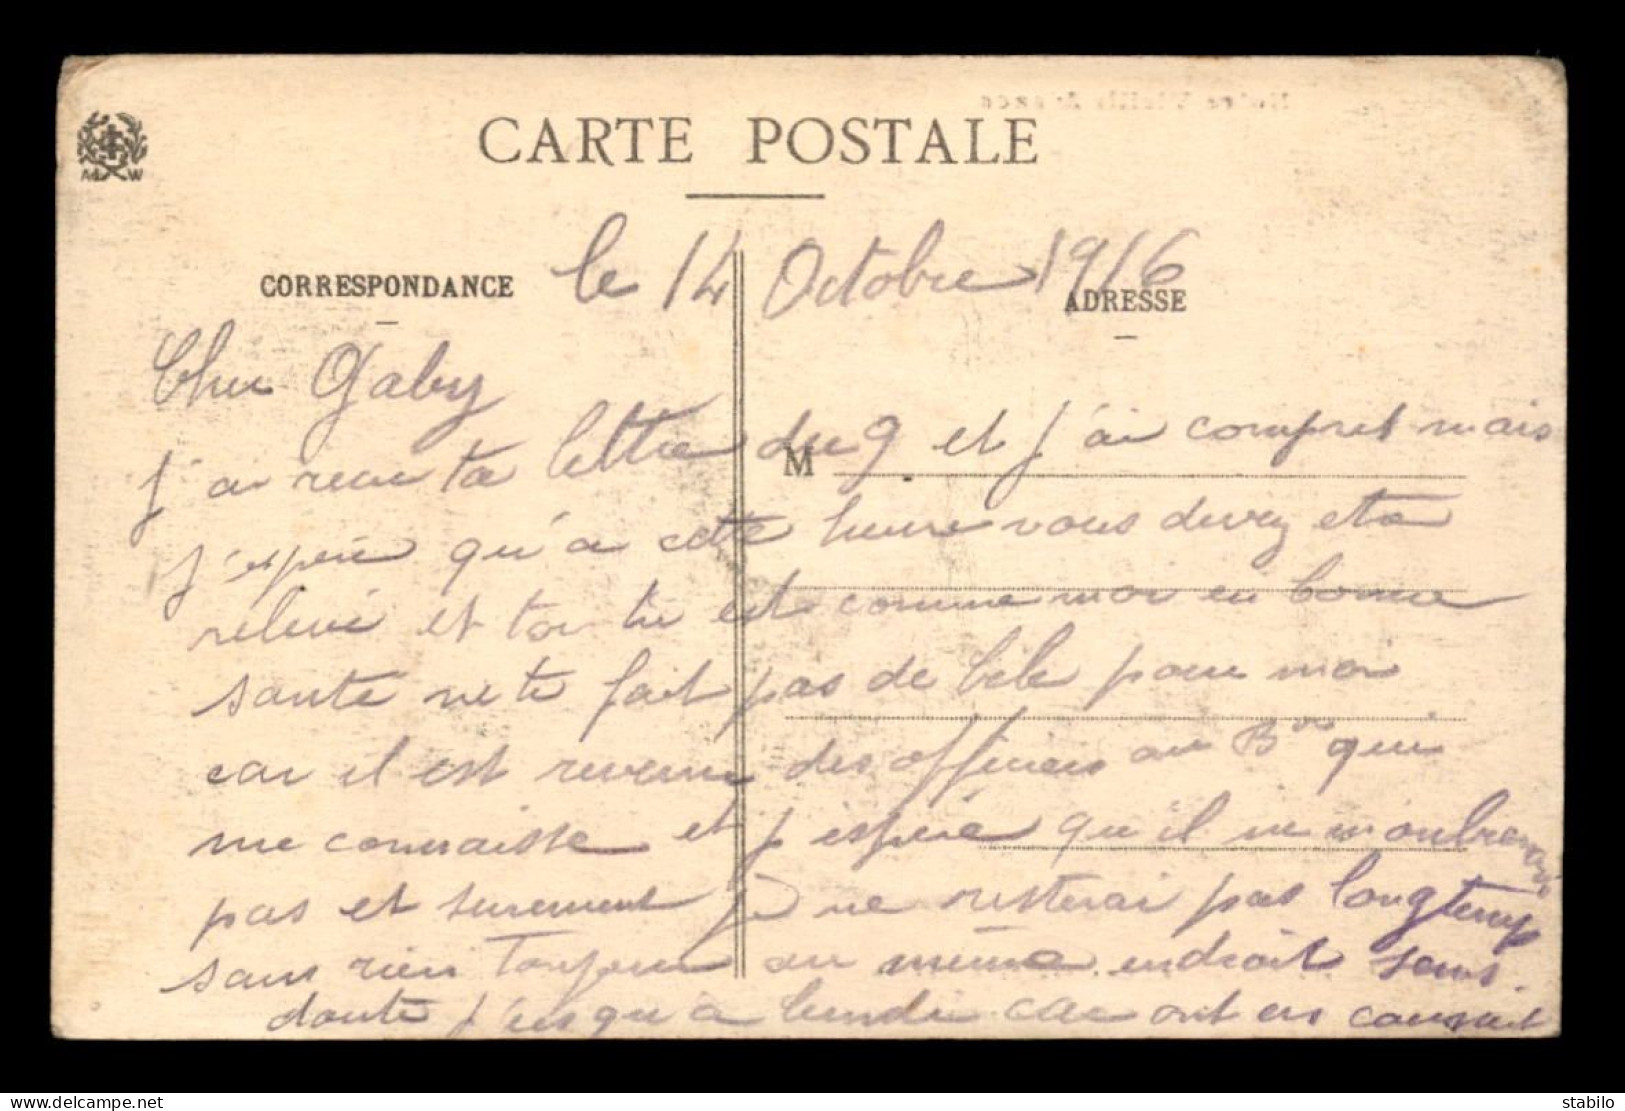 CARTE POSTALE
A W
CORRESPONDANCE
ADRESSE
M
le 14 Octobre 1916
Cher Gaby
j'ai recu ta lettre du 9 et j'ai compret mais
j'espere qu'a cette heure vous devez eta
relevé et toi tu est comme moi en bonne
santé ne te fait pas de bile pour moi
car il est revenu des officiers au Bon qui
me connaisse et j'espére qu'il m
pas et surement je ne resterai pas longtemps
sans rien toujour au même endroit sans
doute j'usqu'a lundi car ont en
www.delcampe.net
stabilo